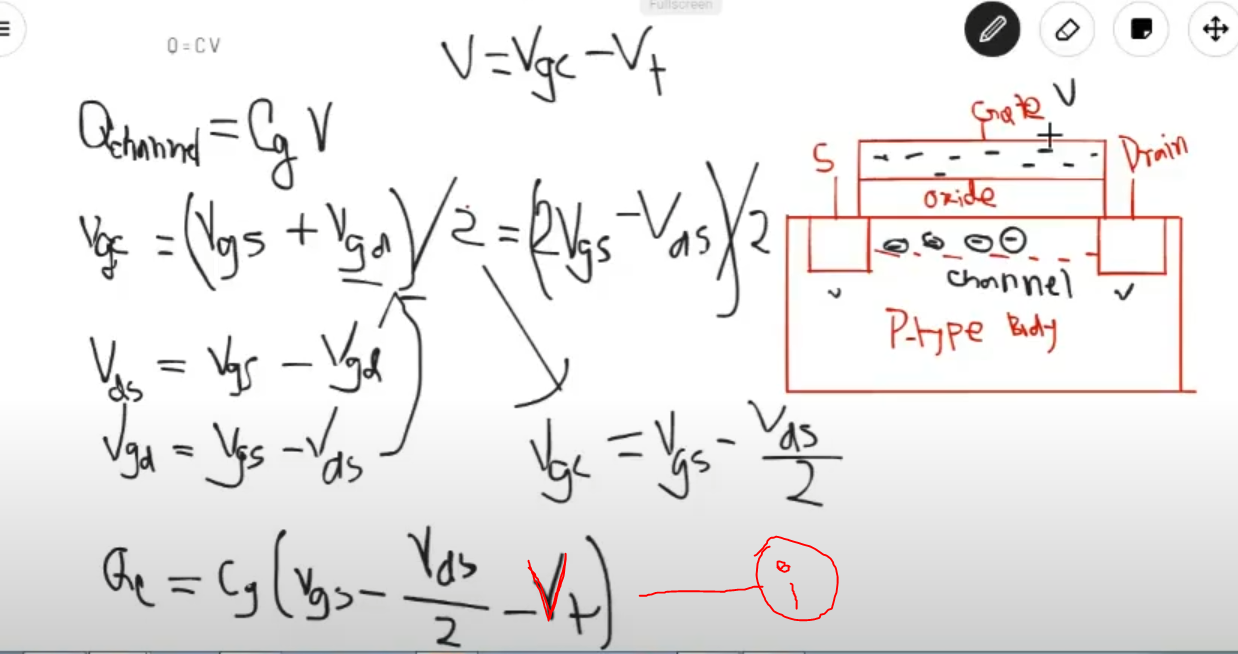 Fullscreen
Q = CV
V = Vgc - Vt
Qchannel = Cg V
Vgc = (Vgs + Vgd) / 2 = (2Vgs - Vds) / 2
Vds = Vgs - Vgd
Vgd = Vgs - Vds
Vgc = Vgs - Vds/2
Qc = Cg (Vgs - Vds/2 - Vt)
Gate V
S
Drain
oxide
channel
P-type Body